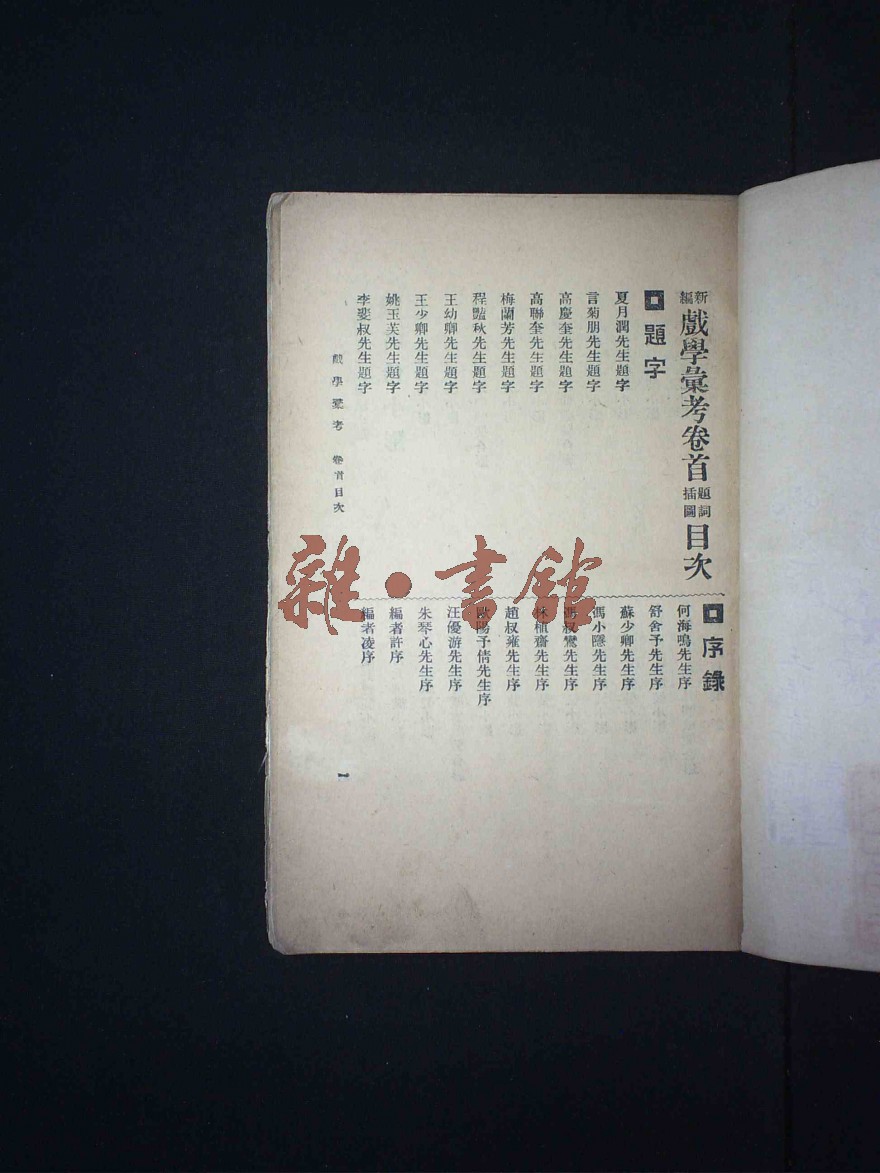 新編戲學彙考卷首題詞插圖目次
題字
夏月潤先生題字
言菊朋先生題字
高慶奎先生題字
高聯奎先生題字
梅蘭芳先生題字
程豔秋先生題字
王幼卿先生題字
王少卿先生題字
姚玉芙先生題字
李斐叔先生題字
序錄
何海鳴先生序
舒舍予先生序
蘇少卿先生序
馮小隱先生序
馮叔鸞先生序
植齋先生序
趙叔雍先生序
歐陽予倩先生序
汪優游先生序
朱琴心先生序
編者許序
編者凌序
戲學彙考 卷首目次
一
雜·書館